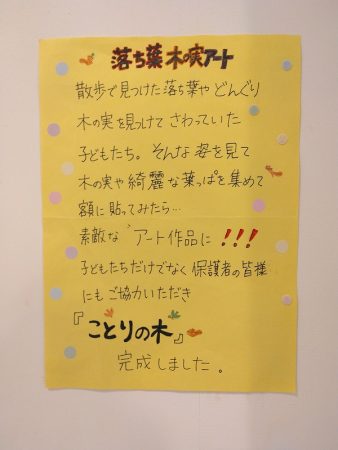 落ち葉木の実アート
散歩で見つけた落ち葉や どんぐり
木の実を見つけて さわっていた
子どもたち。そんな姿を見て
木の実や綺麗な葉っぱを集めて
額に貼ってみたら…
素敵な〝アート作品に!!!
子どもたちだけでなく保護者の皆様
にもご協力いただき
『ことりの木』
完成しました。